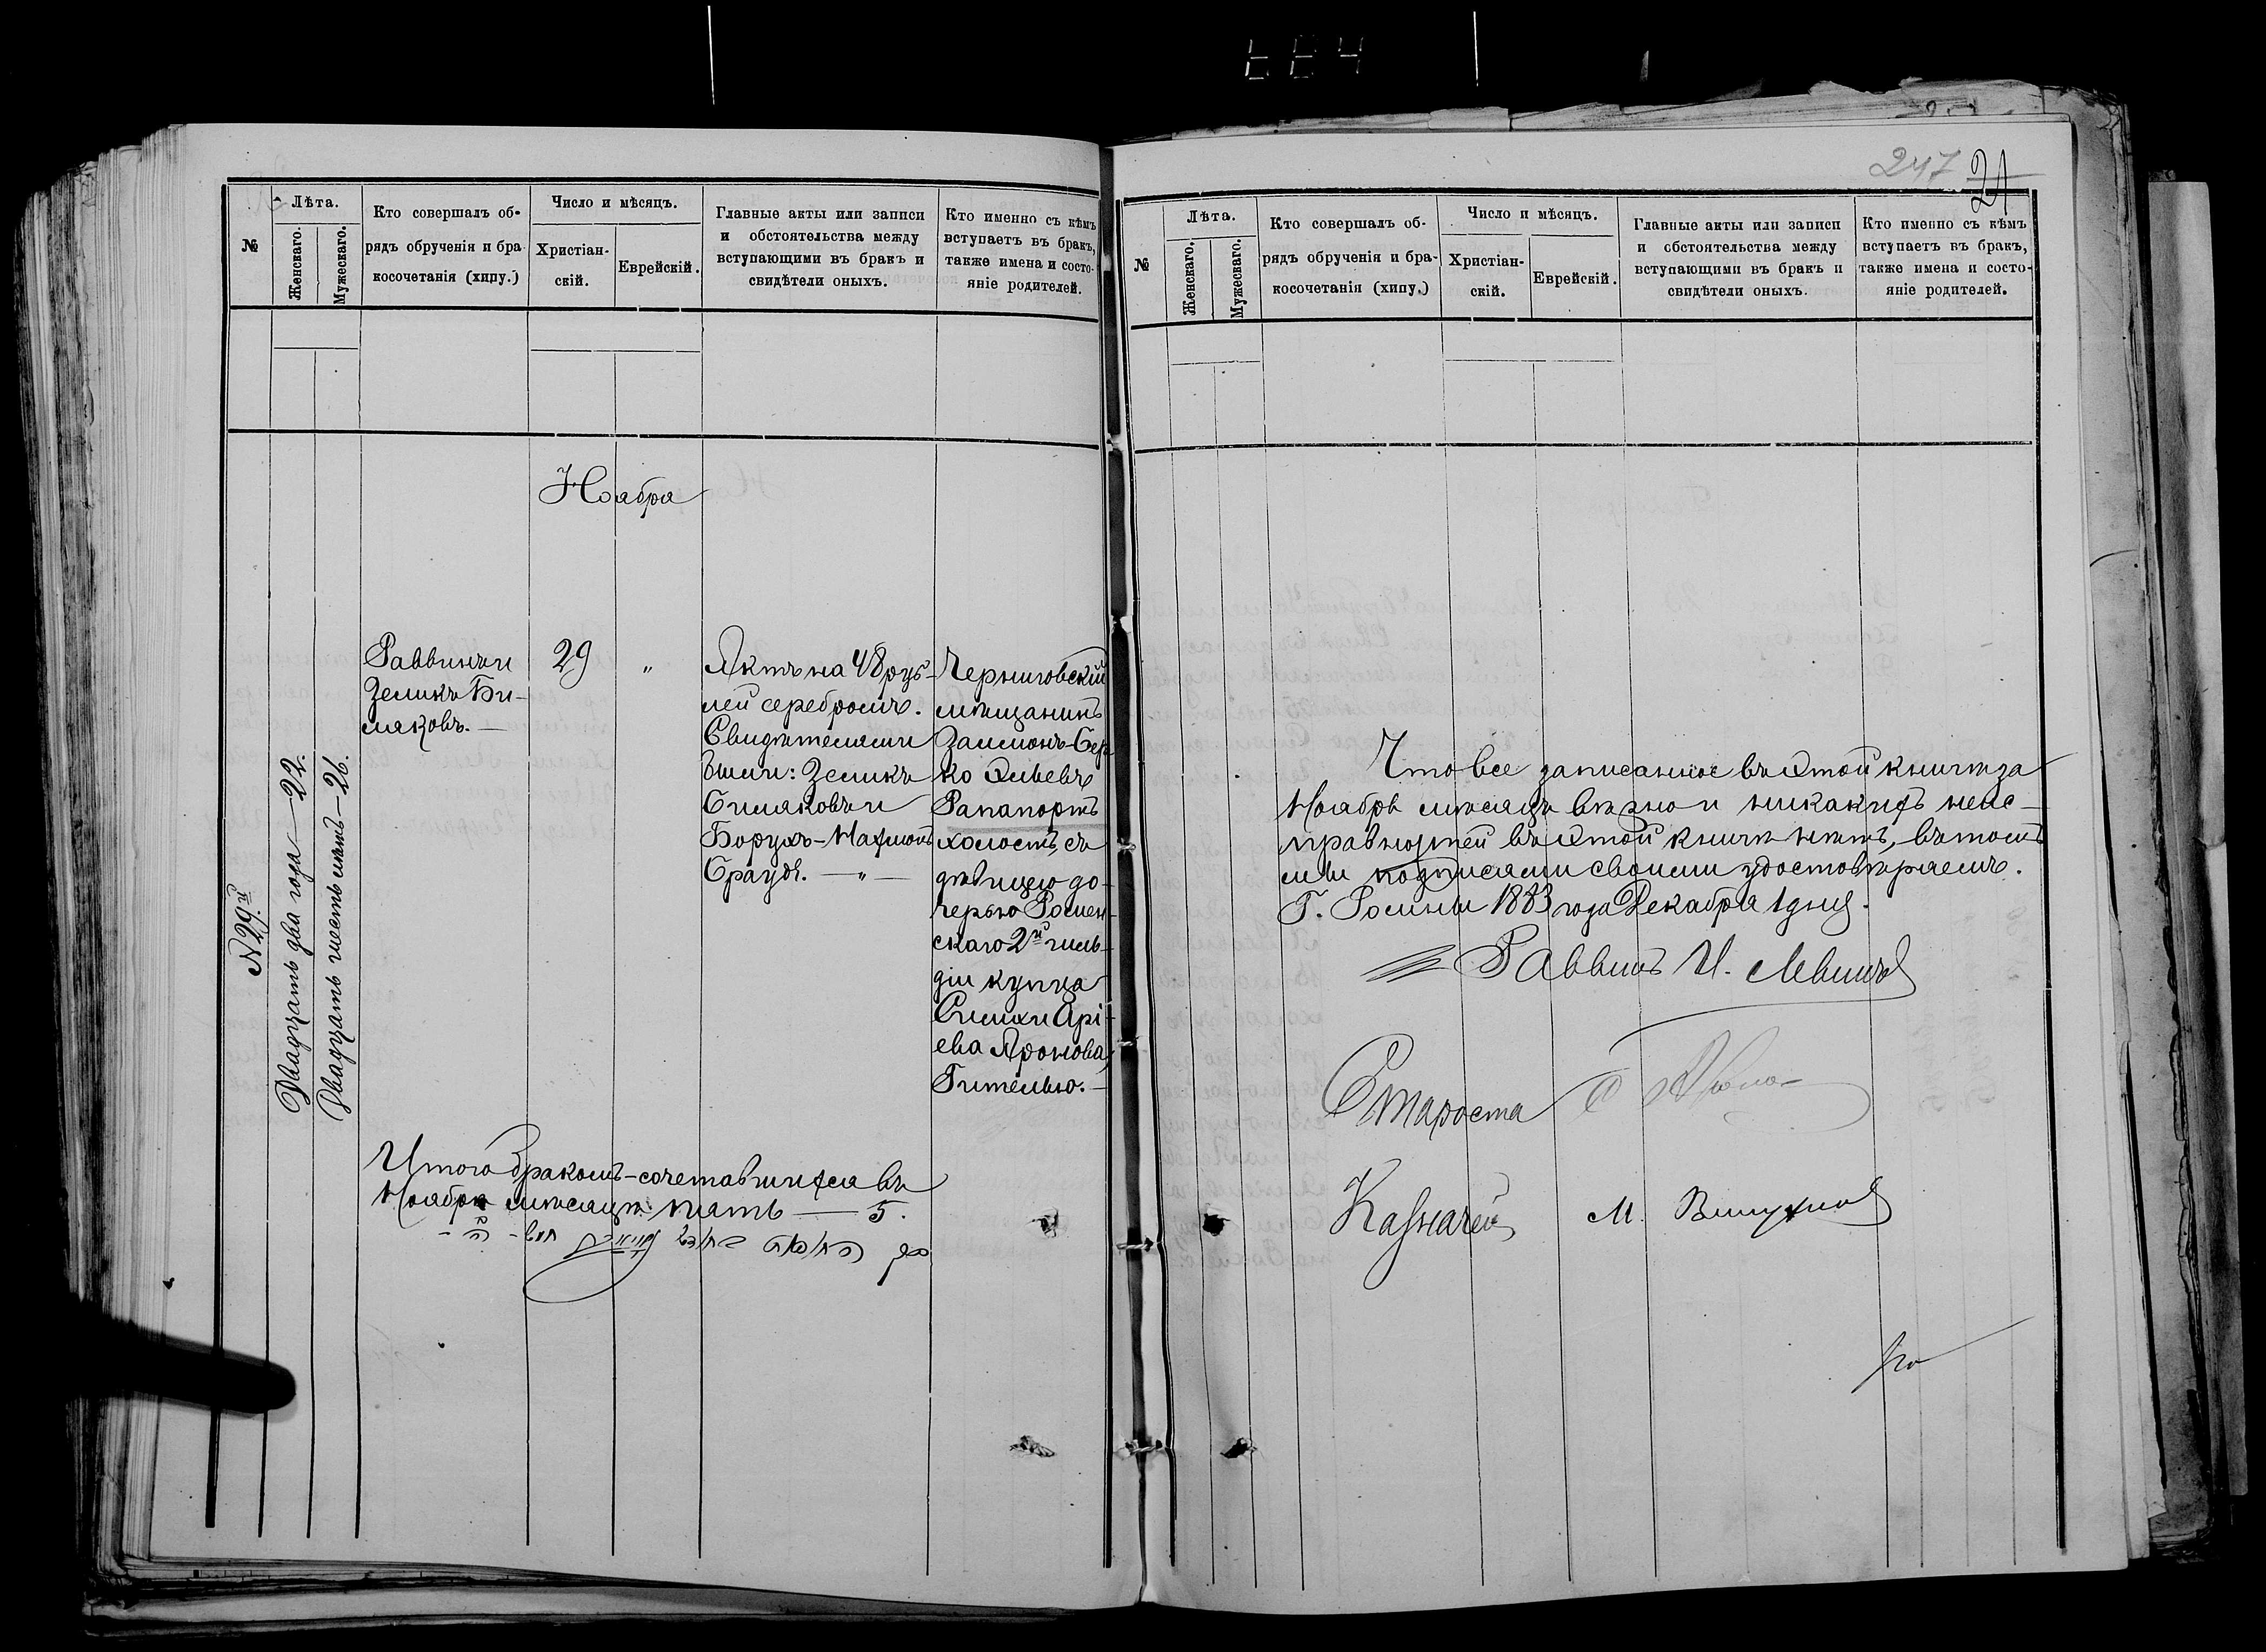 247
21
№
Лѣта.
Женскаго.
Мужескаго.
Кто совершалъ об-
рядъ обрученія и бра
косочетанія (хипу.)
Число и мѣсяцъ.
Христіан-
скій.
Еврейскій.
Главные акты или записи
и обстоятельства между
вступающими въ бракъ и
свидѣтели оныхъ.
Кто именно съ кѣмъ
вступаетъ въ бракъ,
также имена и состо-
яніе родителей.
Ноабра
№ 29й
Двадцать два года — 22.
Двадцать шесть лѣтъ — 26.
Раввинъ и
Зеликъ Би-
маковъ. —
29
"
Актъ на 48 руб-
лей серебромъ.
Свидѣтелями
были: Зеликъ
Бимаковъ и
Борухъ-Нахмонъ
Браудъ. — " —
Черниговскій
мѣщанинъ
Залмонъ-Бер
ко Эльевъ
Рапапортъ
холостъ, съ
дѣвицею до-
черью Ромен-
скаго 2й гиль-
діи купца
Симхи Арі-
ева Аронова,
Гителью. —
Итого бракомъ-сочетавшихся въ
Ноябрѣ мѣсяцѣ пять — 5.
№
Лѣта.
Женскаго.
Мужескаго.
Кто совершалъ об-
рядъ обрученія и бра-
косочетанія (хипу.)
Число и мѣсяцъ.
Христіан-
скій.
Еврейскій.
Главные акты или записи
и обстоятельства между
вступающими въ бракъ и
свидѣтели оныхъ.
Кто именно съ кѣмъ
вступаетъ въ бракъ,
также имена и состо-
яніе родителей.
Что все записанное въ этой книгѣ за
Ноябрь мѣсяцъ вѣрно и никакихъ неис-
правностей въ этой книгѣ нѣтъ, въ томъ
мы подписями своими удостовѣряемъ.
Г. Ромны 1883 года Декабря 1 дня.
Раввинъ И. Левинъ
Староста
Казначей М.